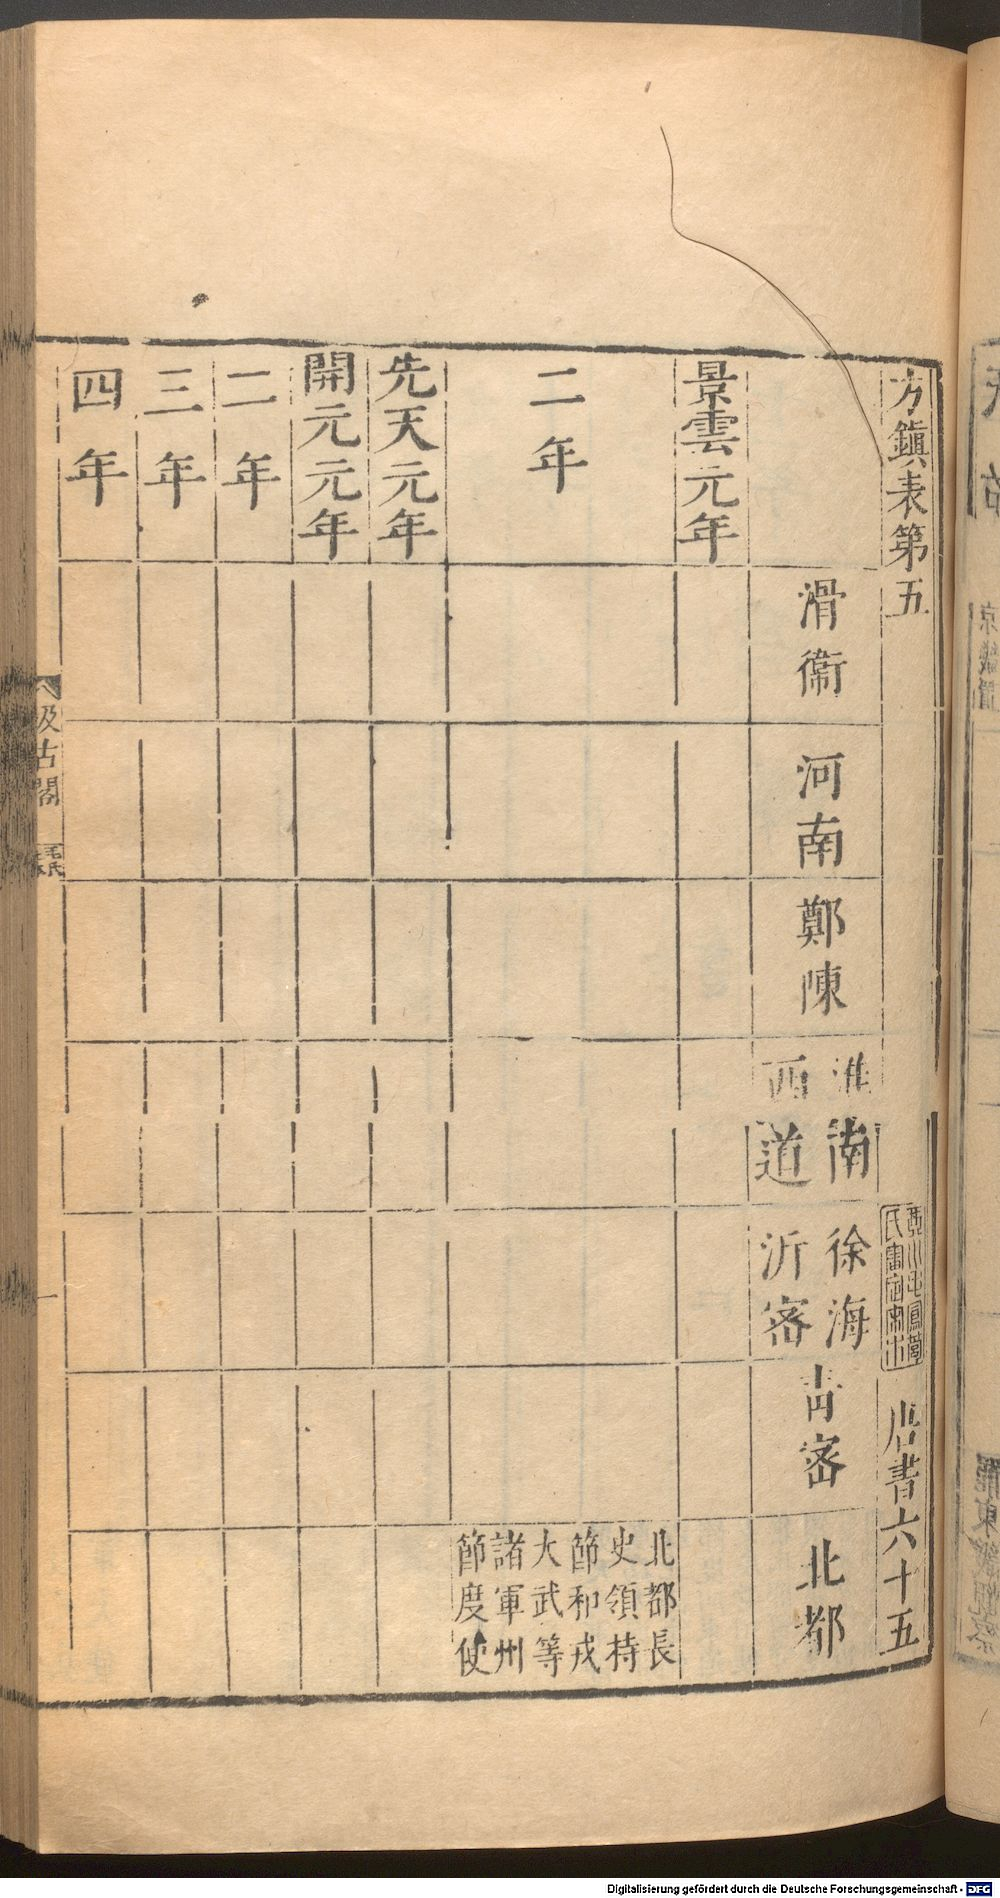 方鎮表第五
唐書六十五
滑衞
河南
鄭陳
淮南
西道
徐海
沂密
青密
北都
景雲元年
二年
北都長
史領持
節和戎
大武等
諸軍州
節度使
先天元年
開元元年
二年
三年
四年
汲古閣
毛氏
一
Digitalisierung gefördert durch die Deutsche Forschungsgemeinschaft - DFG